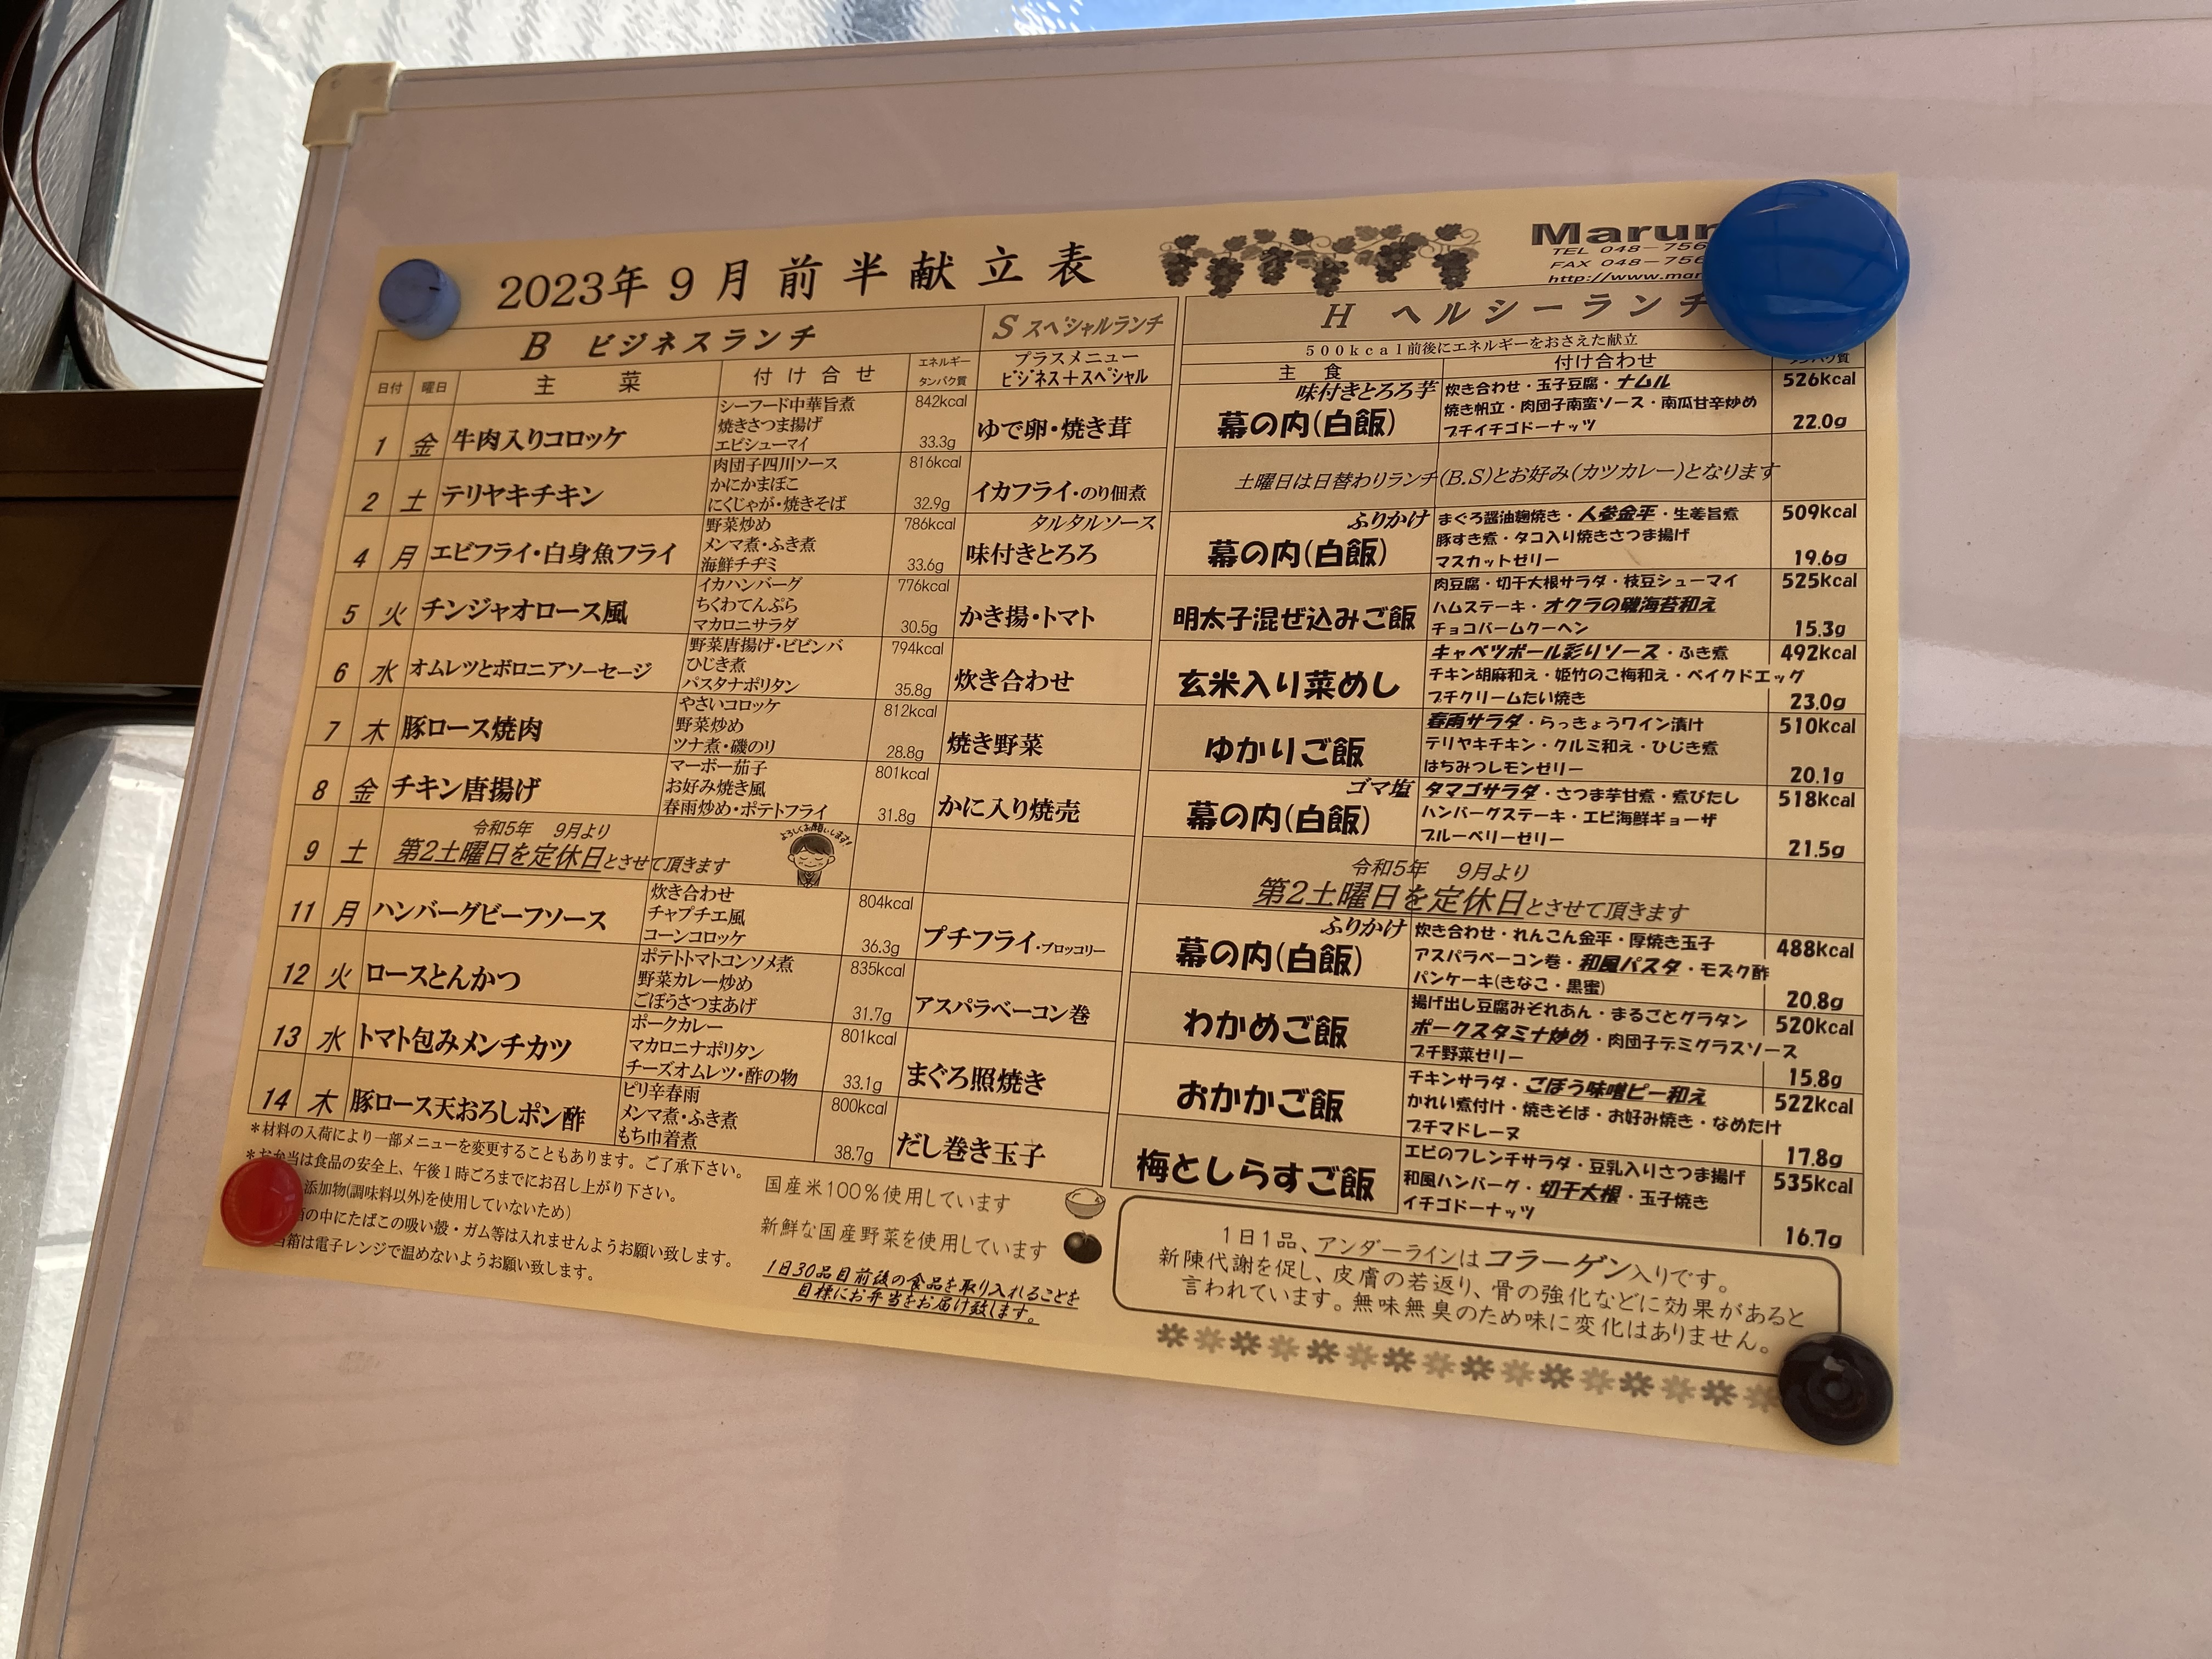 2023年 9 月 前 半 献 立 表
Marur
TEL 048-756
FAX 048-756
http://www.mar
B ビジネスランチ
S スペシャルランチ
日付 曜日 主 菜 付 け 合 せ エネルギー タンパク質
プラスメニュー
ビジネス＋スペシャル
1 金 牛肉入りコロッケ
シーフード中華旨煮
焼きさつま揚げ
エビシューマイ
842kcal
33.3g
ゆで卵・焼き茸
2 土 テリヤキチキン
肉団子四川ソース
かにかまぼこ
にくじゃが・焼きそば
816kcal
32.9g
イカフライ・のり佃煮
4 月 エビフライ・白身魚フライ
野菜炒め
メンマ煮・ふき煮
海鮮チヂミ
786kcal
33.6g
タルタルソース
味付きとろろ
5 火 チンジャオロース風
イカハンバーグ
ちくわてんぷら
マカロニサラダ
776kcal
30.5g
かき揚・トマト
6 水 オムレツとボロニアソーセージ
野菜唐揚げ・ビビンバ
ひじき煮
パスタナポリタン
794kcal
35.8g
炊き合わせ
7 木 豚ロース焼肉
やさいコロッケ
野菜炒め
ツナ煮・磯のり
812kcal
28.8g
焼き野菜
8 金 チキン唐揚げ
マーボー茄子
お好み焼き風
春雨炒め・ポテトフライ
801kcal
31.8g
かに入り焼売
9 土
令和5年 9月より
第2土曜日を定休日とさせて頂きます
よろしくお願いします!
11 月 ハンバーグビーフソース
炊き合わせ
チャプチエ風
コーンコロッケ
804kcal
36.3g
プチフライ・ブロッコリー
12 火 ロースとんかつ
ポテトトマトコンソメ煮
野菜カレー炒め
ごぼうさつまあげ
835kcal
31.7g
アスパラベーコン巻
13 水 トマト包みメンチカツ
ポークカレー
マカロニナポリタン
チーズオムレツ・酢の物
801kcal
33.1g
まぐろ照焼き
14 木 豚ロース天おろしポン酢
ピリ辛春雨
メンマ煮・ふき煮
もち巾着煮
800kcal
38.7g
だし巻き玉子
＊材料の入荷により一部メニューを変更することもあります。ご了承下さい。
＊お弁当は食品の安全上、午後１時ごろまでにお召し上がり下さい。
添加物(調味料以外)を使用していないため）
の中にたばこの吸い殻・ガム等は入れませんようお願い致します。
箱は電子レンジで温めないようお願い致します。
国産米100％使用しています
新鮮な国産野菜を使用しています
1日30品目前後の食品を取り入れることを
目標にお弁当をお届け致します。
H ヘルシーランチ
５００ｋｃａｌ前後にエネルギーをおさえた献立
主 食 付け合わせ
味付きとろろ芋
幕の内(白飯)
炊き合わせ・玉子豆腐・ナムル
焼き帆立・肉団子南蛮ソース・南瓜甘辛炒め
プチイチゴドーナッツ
526kcal
22.0g
土曜日は日替わりランチ(B.S)とお好み(カツカレー)となります
ふりかけ
幕の内(白飯)
まぐろ醤油麹焼き・人参金平・生姜旨煮
豚すき煮・タコ入り焼きさつま揚げ
マスカットゼリー
509kcal
19.6g
明太子混ぜ込みご飯
肉豆腐・切干大根サラダ・枝豆シューマイ
ハムステーキ・オクラの磯海苔和え
チョコバームクーヘン
525kcal
15.3g
玄米入り菜めし
キャベツボール彩りソース・ふき煮
チキン胡麻和え・姫竹のこ梅和え・ベイクドエッグ
プチクリームたい焼き
492kcal
23.0g
ゆかりご飯
春雨サラダ・らっきょうワイン漬け
テリヤキチキン・クルミ和え・ひじき煮
はちみつレモンゼリー
510kcal
20.1g
ゴマ塩
幕の内(白飯)
タマゴサラダ・さつま芋甘煮・煮びたし
ハンバーグステーキ・エビ海鮮ギョーザ
ブルーベリーゼリー
518kcal
21.5g
令和5年 9月より
第2土曜日を定休日とさせて頂きます
ふりかけ
幕の内(白飯)
炊き合わせ・れんこん金平・厚焼き玉子
アスパラベーコン巻・和風パスタ・モズク酢
パンケーキ(きなこ・黒蜜)
488kcal
20.8g
わかめご飯
揚げ出し豆腐みぞれあん・まるごとグラタン
ポークスタミナ炒め・肉団子デミグラスソース
プチ野菜ゼリー
520kcal
15.8g
おかかご飯
チキンサラダ・ごぼう味噌ピー和え
かれい煮付け・焼きそば・お好み焼き・なめたけ
プチマドレーヌ
522kcal
17.8g
梅としらすご飯
エビのフレンチサラダ・豆乳入りさつま揚げ
和風ハンバーグ・切干大根・玉子焼き
イチゴドーナッツ
535kcal
16.7g
1日1品、アンダーラインはコラーゲン入りです。
新陳代謝を促し、皮膚の若返り、骨の強化などに効果があると
言われています。無味無臭のため味に変化はありません。